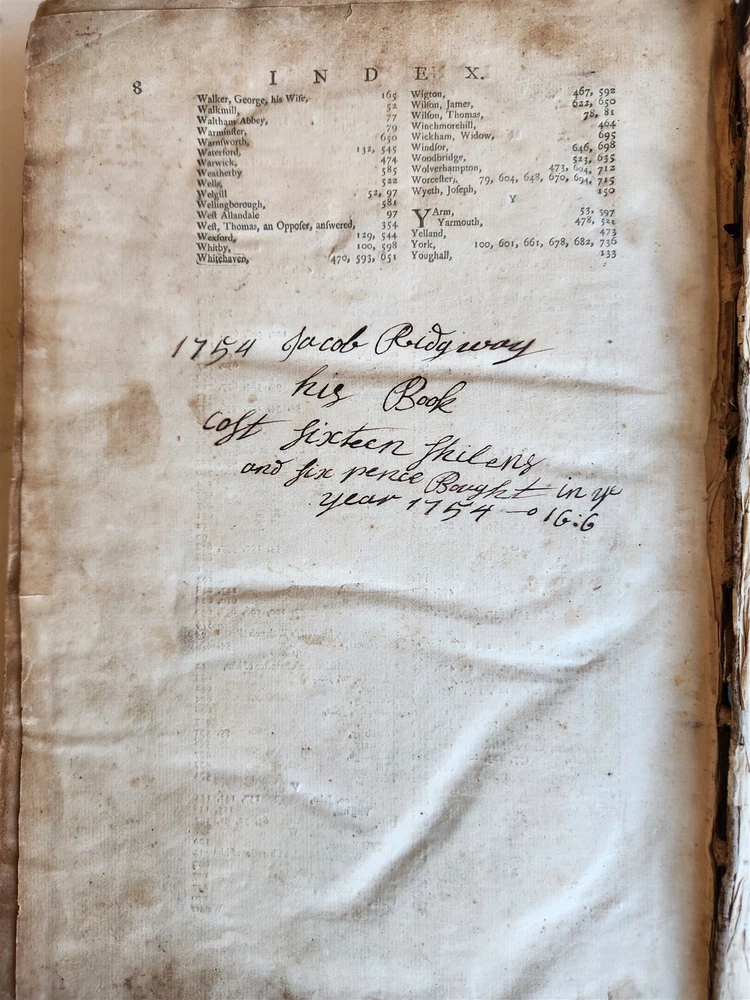 8 INDEX.
Walker, George, his Wife, 165
Walkmill, 52
Waltham Abbey, 77
Warminſter, 79
Warnſworth, 650
Waterford, 132, 545
Warwick, 474
Weatherby 585
Wells, 522
Welgill 52, 97
Wellingborough, 581
Weſt Allandale 97
Weſt, Thomas, an Oppoſer, anſwered, 354
Wexford, 129, 544
Whitby, 100, 598
Whitehaven, 470, 593, 651
Wigton, 467, 592
Wilſon, James, 622, 650
Wilſon, Thomas, 78, 81
Winchmorehill, 464
Wickham, Widow, 695
Windſor, 646, 698
Woodbridge, 523, 635
Wolverhampton, 473, 604, 712
Worceſter, 79, 604, 648, 670, 694, 715
Wyeth, Joſeph, 150
Y
YArm, 53, 597
Yarmouth, 478, 521
Yelland, 473
York, 100, 601, 661, 678, 682, 736
Youghall, 133
1754 Jacob Ridgway
his Book
coſt ſixteen ſhilens
and ſix pence Bought in ye
year 1754 —o 16:6